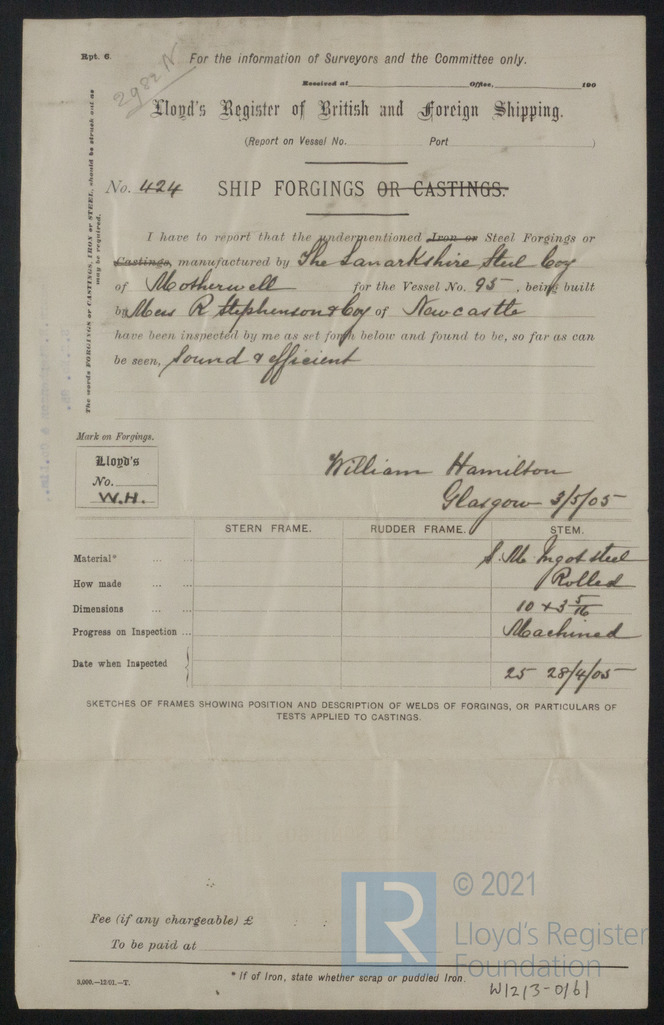 Rpt. 6.
2982 N
For the information of Surveyors and the Committee only.
Received at Office, 190
Lloyd's Register of British and Foreign Shipping.
(Report on Vessel No. Port )
No. 424 SHIP FORGINGS OR CASTINGS.
The words FORGINGS or CASTINGS, IRON or STEEL, should be struck out as
may be required.
I have to report that the undermentioned Iron or Steel Forgings or
Castings, manufactured by The Lanarkshire Steel Coy
of Motherwell for the Vessel No. 95, being built
by Mess R Stephenson & Coy of Newcastle
have been inspected by me as set forth below and found to be, so far as can
be seen, Sound & efficient
Mark on Forgings.
Lloyd's
No.
W.H.
William Hamilton
Glasgow 3/5/05
STERN FRAME. RUDDER FRAME. STEM.
Material* ... ... S. M. Ingot steel
How made ... ... Rolled
Dimensions ... ... 10 x 3 5/16
Progress on Inspection ... Machined
Date when Inspected 25 28/4/05
SKETCHES OF FRAMES SHOWING POSITION AND DESCRIPTION OF WELDS OF FORGINGS, OR PARTICULARS OF
TESTS APPLIED TO CASTINGS.
Fee (if any chargeable) £ : :
To be paid at
3,000.—12/01.—T.
* If of Iron, state whether scrap or puddled Iron.
LR
© 2021
Lloyd's Register
Foundation
W1213-0161